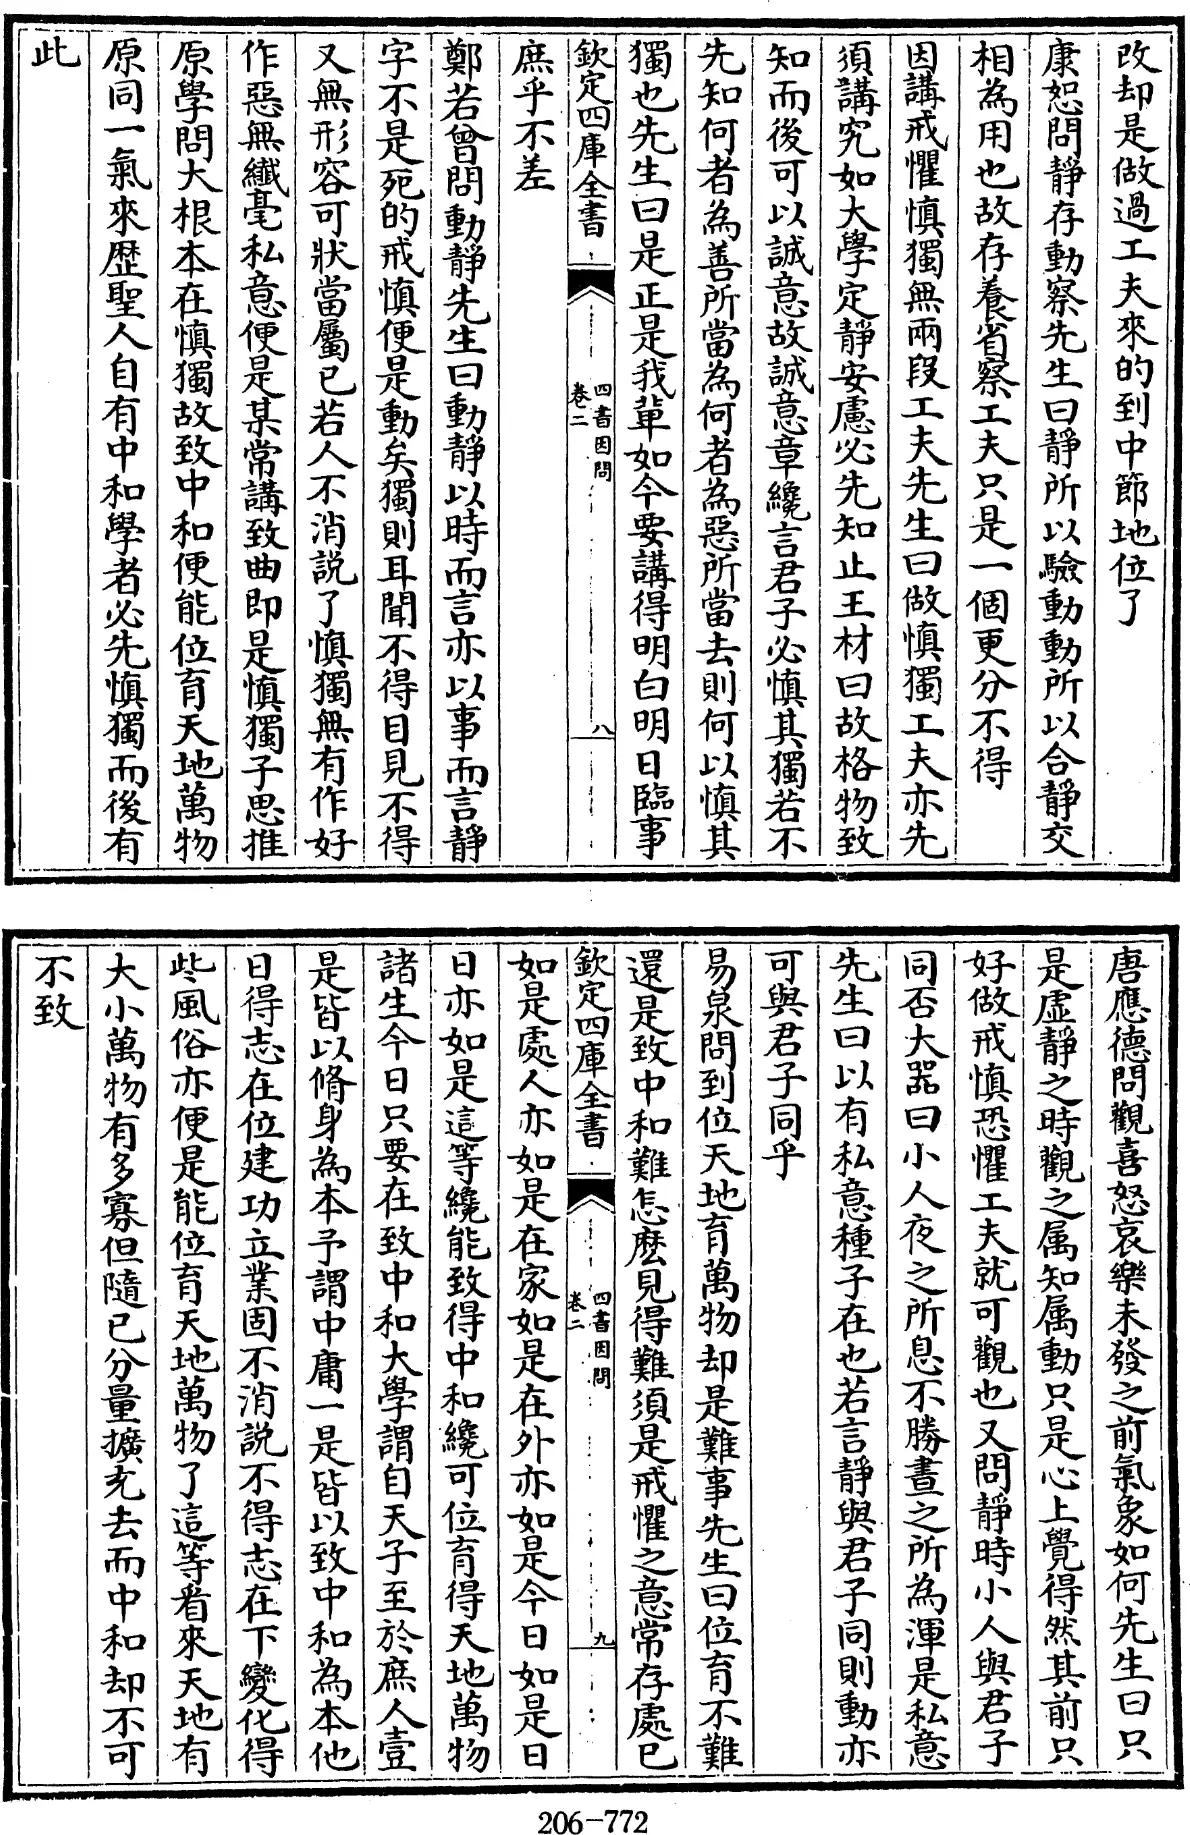 改却是做過工夫來的到中節地位了
康恕問靜存動察先生曰靜所以驗動動所以合靜交
相為用也故存養省察工夫只是一個更分不得
因講戒懼慎獨無兩段工夫先生曰做慎獨工夫亦先
須講究如大學定靜安慮必先知止王材曰故格物致
知而後可以誠意故誠意章纔言君子必慎其獨若不
先知何者為善所當為何者為惡所當去則何以慎其
獨也先生曰是正是我輩如今要講得明白明日臨事
欽定四庫全書
四書因問
卷二
八
庶乎不差
鄭若曾問動靜先生曰動靜以時而言亦以事而言靜
字不是死的戒慎便是動矣獨則耳聞不得目見不得
又無形容可狀當屬已若人不消説了慎獨無有作好
作惡無纖毫私意便是某常講致曲即是慎獨子思推
原學問大根本在慎獨故致中和便能位育天地萬物
原同一氣來歴聖人自有中和學者必先慎獨而後有
此
唐應德問觀喜怒哀樂未發之前氣象如何先生曰只
是虚靜之時觀之属知属動只是心上覺得然其前只
好做戒慎恐懼工夫就可觀也又問靜時小人與君子
同否大器曰小人夜之所息不勝晝之所為渾是私意
先生曰以有私意種子在也若言靜與君子同則動亦
可與君子同乎
易泉問到位天地育萬物却是難事先生曰位育不難
還是致中和難怎麽見得難須是戒懼之意常存處已
欽定四庫全書
四書因問
卷二
九
如是處人亦如是在家如是在外亦如是今日如是日
日亦如是這等纔能致得中和纔可位育得天地萬物
諸生今日只要在致中和大學謂自天子至於庶人壹
是皆以脩身為本予謂中庸一是皆以致中和為本他
日得志在位建功立業固不消説不得志在下變化得
些風俗亦便是能位育天地萬物了這等看來天地有
大小萬物有多寡但隨已分量擴充去而中和却不可
不致
206-772